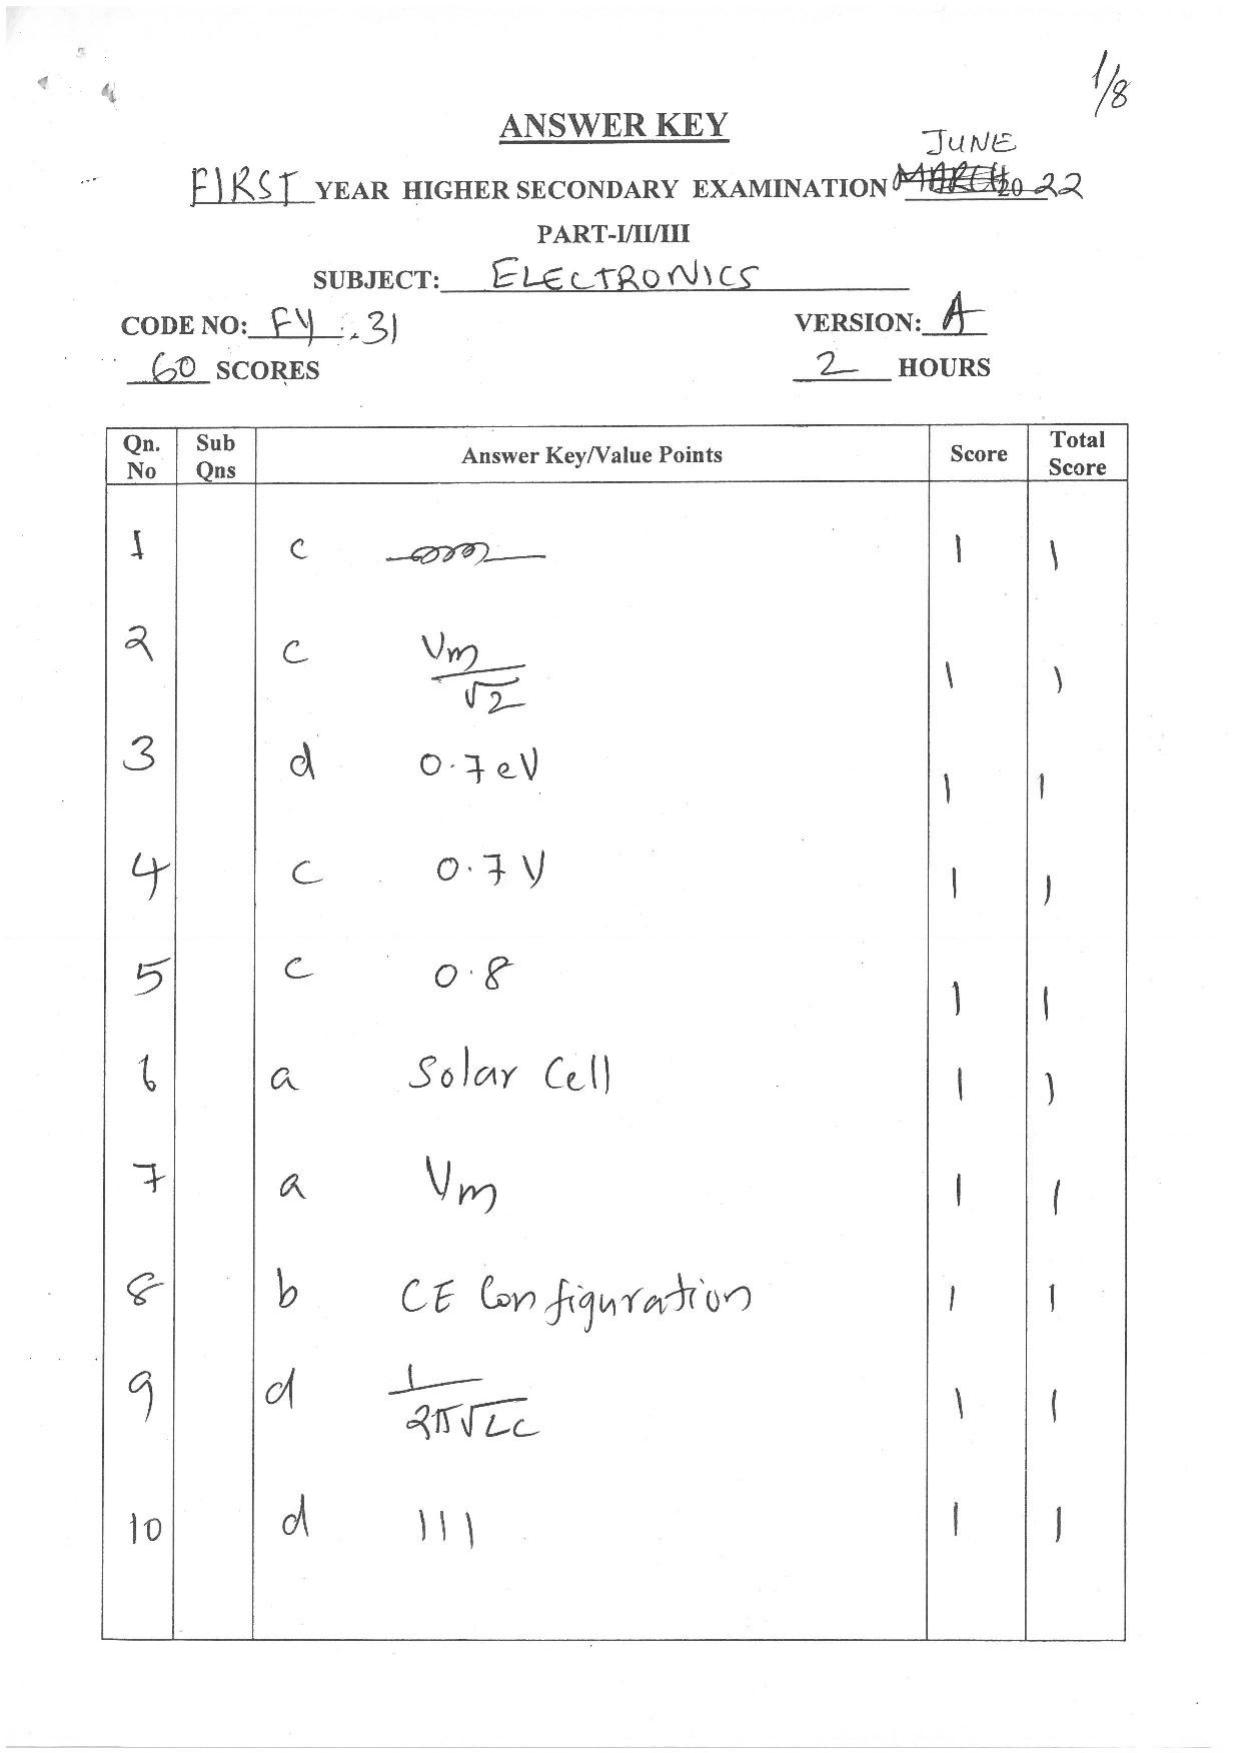 1/8
ANSWER KEY
JUNE
FIRST YEAR HIGHER SECONDARY EXAMINATION MARCH 2022
PART-I/II/III
SUBJECT: ELECTRONICS
CODE NO: FY-31 VERSION: A
60 SCORES 2 HOURS
Qn. No Sub Qns Answer Key/Value Points Score Total Score
1 c 1 1
2 c Vm/√2 1 1
3 d 0.7eV 1 1
4 c 0.7V 1 1
5 c 0.8 1 1
6 a Solar Cell 1 1
7 a Vm 1 1
8 b CE Configuration 1 1
9 d 1/2π√LC 1 1
10 d 111 1 1